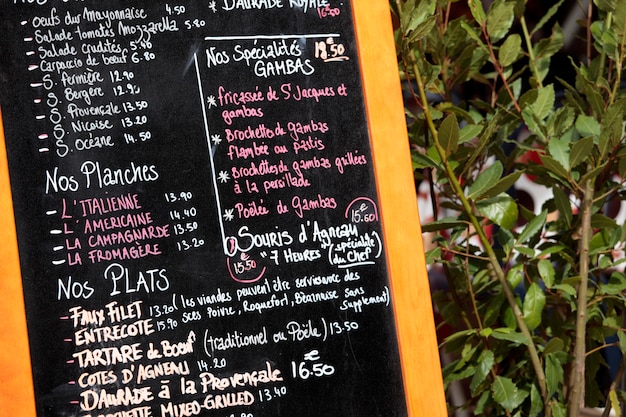 Oeufs durs Mayonnaise 4.50
- Salade tomates Mozzarella
- Salade Crudités 5.40
- Carpaccio de boeuf 6.80
- S. fermière 12.90
- S. Bergère 12.90
- S. Provençale 13.50
- S. Niçoise 13.20
- S. Océane 14.50
Nos Planches
- L'ITALIENNE 13.90
- L'AMERICAINE 14.40
- LA CAMPAGNARDE 13.50
- LA FROMAGÈRE 13.20
DAURADE ROYALE 16.50
Nos Spécialités 18.50€
GAMBAS
* fricassée de St Jacques et
gambas
* Brochettes de gambas
flambée au pastis
* Brochettes de gambas grillées
à la persillade
* Poêlée de Gambas 15.50€
Souris d'Agneau
15.50€ - 7 Heures (spécialité
du Chef)
Nos PLATS
- Faux FILET 13.20 (les viandes peuvent être servies avec des
- ENTRECOTE 15.90 sces Poivre, Roquefort, Béarnaise sans
supplement)
- TARTARE de Boeuf (traditionnel ou Poêlé) 13.50
- COTES D'AGNEAU 14.20
- DAURADE à la Provençale 16.50€
MIXED-GRILLED 13.40